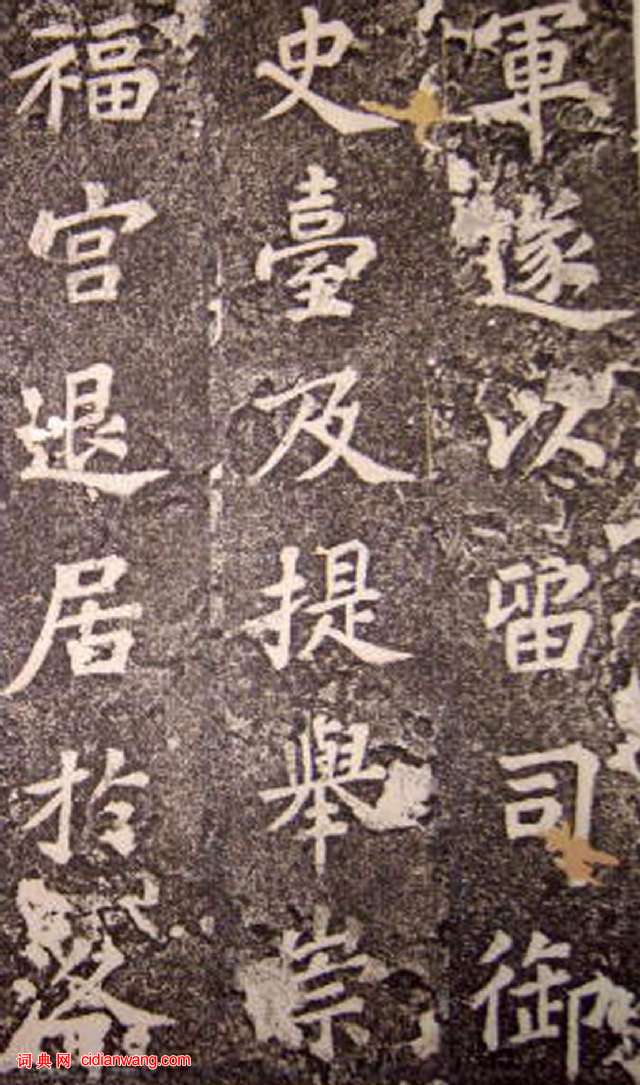 軍遂以留司御
史臺及提舉崇
福宫退居扵洛
词典网 cidianwang.com